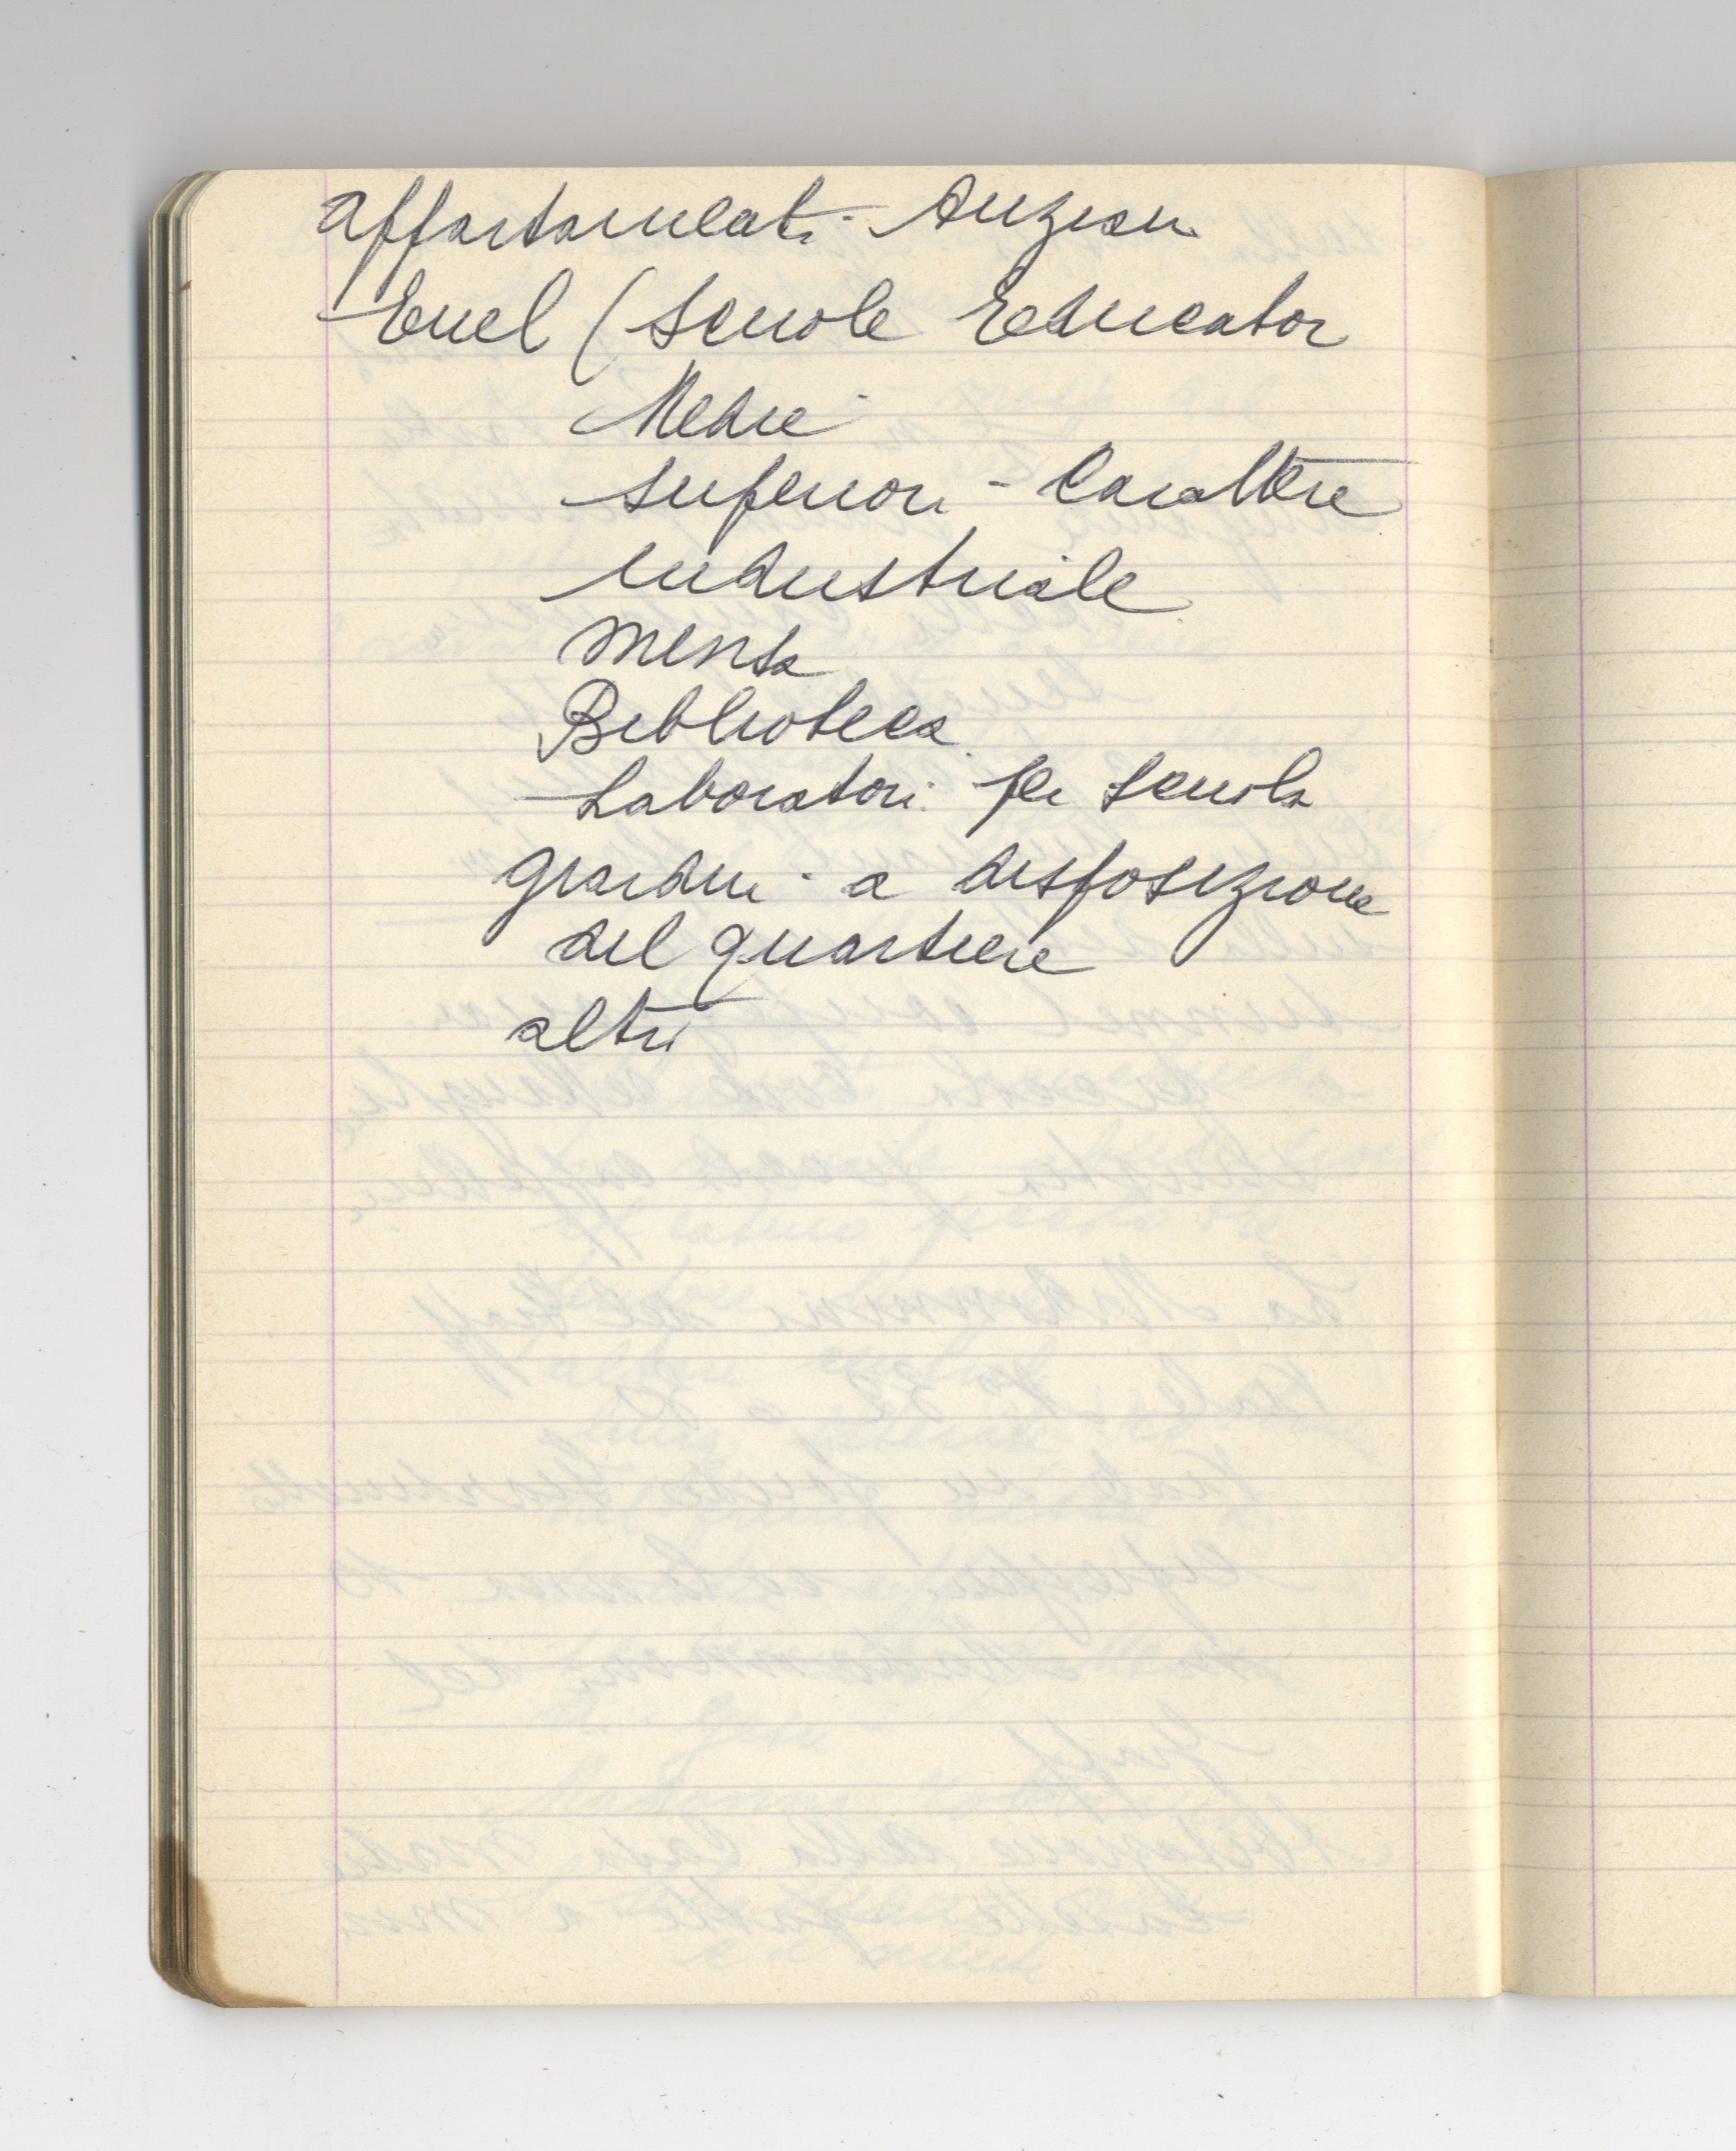 appartamenti - Anziani
Enel (scuole Educatori
Medie -
superiori - Carattere
industriale
mensa
Biblioteca
Laboratori per scuola
giardini - a disposizione
del quartiere
altri